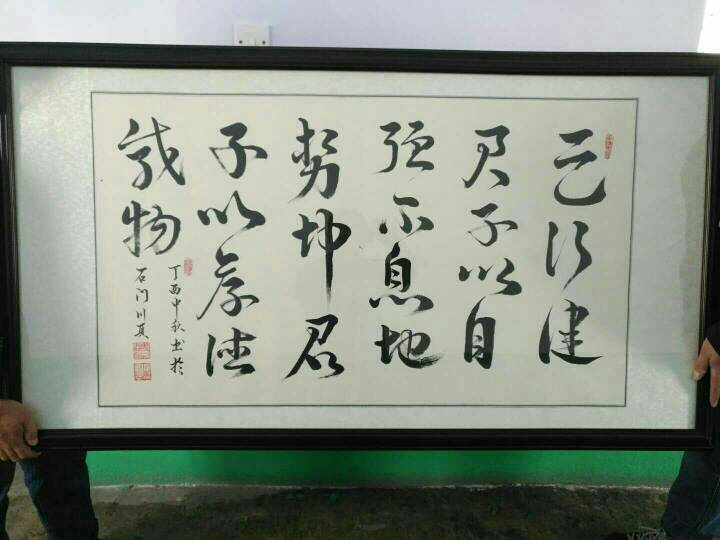 天行健
君子以自
强不息地
势坤君
子以厚德
载物
丁酉中秋书于
石门川